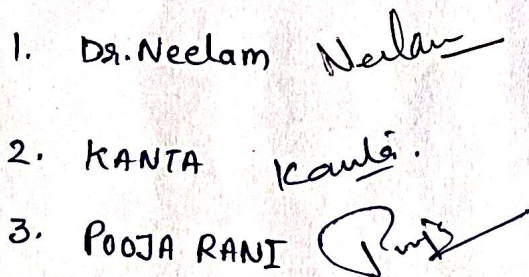 1. Dr. Neelam Neelam
2. KANTA Kanta.
3. POOJA RANI